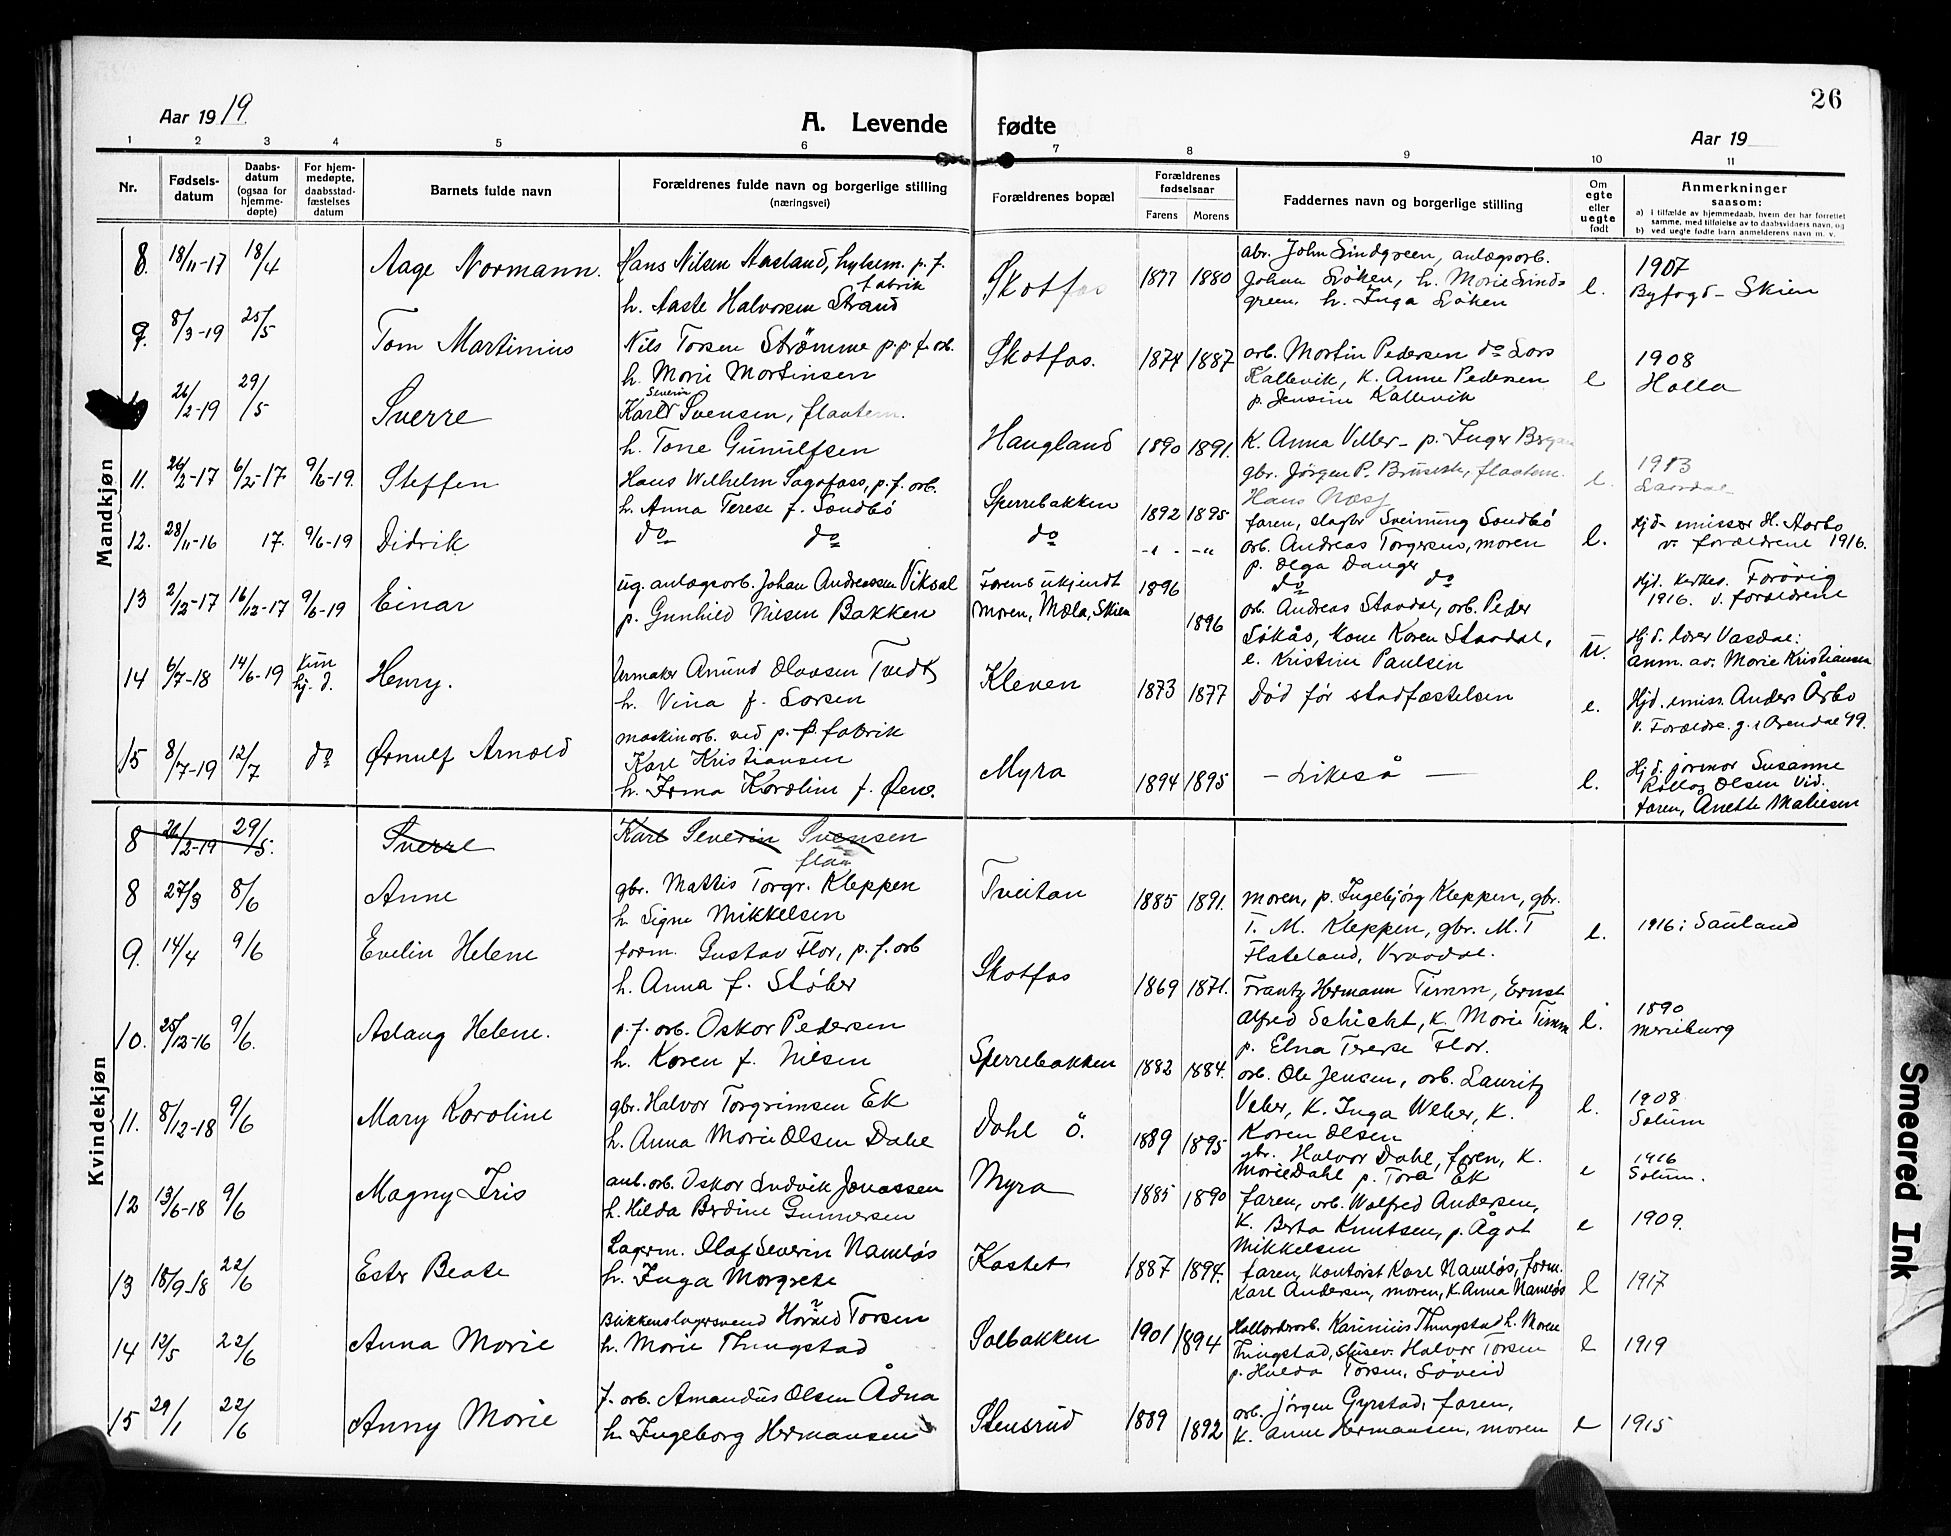 26
Aar 19 19.
A. Levende fødte
Aar 19
1 2 3 4 5 6 7 8 9 10 11
Nr.
Fødsels-
datum
Daabs-
datum
(ogsaa for
hjemme-
døpte)
For hjem-
medøpte,
daabsstad-
fæstelses
datum
Barnets fulde navn
Forældrenes fulde navn og borgerlige stilling
(næringsvei)
Forældrenes bopæl
Forældrenes
fødselsaar
Farens Morens
Faddernes navn og borgerlige stilling
Om
egte
eller
uegte
født
Anmerkninger
saasom:
a) I tilfælde av hjemmedaab, hvem der har forrettet
samme, med tilføielse av to daabsvidners navn, og
b) ved uegte fødte barn anmelderens navn m. v.
Mandkjøn
8. 18/11-17 18/4 Aage Normann.
Hans Nilsen Aasland, hylsem. p. f.
fabrik
h. Aaste Halvorsen Strand
Skotfos 1877 1880
abr. John Lindgreen, anlægsarb.
Johan Sjøken, h. Marie Lind-
green, h. Inga Sjøken
e.
1907
Byfogd - Skien
9. 8/3-19 25/5 Tom Martinius
Nils Torsen Strømme p.p.f. arb.
h. Marie Martinsen
Skotfos. 1874 1887
arb. Martin Pedersen do Lars
Kallevik, k. Anne Pedersen
p. Jensine Kallevik
e
1908
Holla
26/2-19 29/5 Sverre
Severin
Karl Svensen, fløtem.
h. Tone Gunulfsen
Haugland 1890 1891.
K. Anna Viller - p. Inger Bergan
gbr. Jørgen P. Brusette, fløtem.
Hans Næss
e.
1913
Laardal
11. 26/2-17 6/2-17 9/6-19. Steffen
Hans Wilhelm Sagafoss, p. f. arb.
h. Anna Terese f. Sandbø
Sperrebakken 1892 1895
faren, slagtr Sveinung Sandbø
arb. Andreas Torgersen, moren
p. Olga Danger
e.
Hjd. emissær H. Aarbo
v. forældrene 1916.
12. 28/11-16 17. 9/6-19 Didrik
do do do -"- -"-
do do
Hjd. kirkes. Forøvig
1916. v. forældrene
13 2/12-17 16/12-17 9/6-19 Einar
ug. anlægsarb. Johan Andreassen Viksal
p. Gunhild Nilsen Bakken
Farens ukjendt
Moren, Mæla, Skien
1896
1896
arb. Andreas Staadal, arb. Peder
Løkås, kone Karen Staadal,
e. Kristine Paulsen
u.
Hjd. lærer Vasdal:
anm. av. Marie Kristiansen
14 6/7-18 14/6-19 Kun
hj. d.
Henry.
Urmaker Amund Olavsen Tvedt
h. Vina f. Larsen
Kleven 1873 1877 Død før stadfæstelsen e.
Hjd. emiss. Anders Årbo
v. Forældre. g. i Arendal 99.
15 8/7-19 12/7 do Ørnulf Arnold
maskinarb. ved p. p. fabrik
Karl Kristiansen
h. Irma Karoline f. Øen.
Myra 1894 1895 - Likeså - e.
Hjd. jormor Susanne
Olsen Vid.
faren, Anette Mathisen
Kvindekjøn
8 26/2-19 29/5. Sverre Karl Severin Svensen
fløt
8 27/3 8/6 Anne
gbr. Mattis Torgr. Kleppen
h. Signe Mikkelsen
Tveitan 1885 1891.
moren, p. Ingebjørg Kleppen, gbr.
T. M. Kleppen, gbr. M. T
Flateland, Vraadal.
e. 1916: Sauland
9. 14/4 9/6 Evelin Helene
form. Gustav Flor, p. f. arb
h. Anna f. Støber
Skotfos 1869 1871.
Frantz Hermann Timm, Ernst
Alfred Schicht, k. Marie Timm
p. Elna Terese Flor.
e.
1890
Merseburg
10. 25/12-16 9/6. Aslaug Helene.
p. f. arb. Oskar Pedersen
h. Karen f. Nilsen
Sperrebakken 1882 1884.
arb. Ole Jensen, arb. Lauritz
Veber, k. Inga Weber, k.
Karen Olsen
e.
1908
Solum
11. 8/12-18 9/6 Mary Karoline
gbr. Halvor Torgrimsen Ek
h. Anna Marie Olsen Dahl
Dahl ö. 1889 1895
gbr. Halvor Dahl, faren, k.
Marie Dahl p. Tora Ek
e
1916
Solum.
12 13/6-18 9/6 Magny Iris
anl. arb. Oskar Ludvik Jonassen
h. Hilda Berdine Gunnersen
Myra 1885 1890
faren, arb. Walfred Andersen,
k. Berta Knutsen, p. Ågot
Mikkelsen
e 1909.
13 18/9-18 22/6 Ester Beate
Lagerm. Olaf Severin Namløs
h. Inga Margrete
Kastet 1887 1894.
faren, kontorist Karl Namløs, form.
Karl Andersen, moren, k. Anna Namløs
e 1917
14 12/5 22/6 Anna Marie
Blikkenslagersvend Harald Torsen
h. Marie Thingstad
Solbakken 1901 1894
Kallarderarb. Karinius Thingstad h. Maren
Thingstad, slusev. Halvor Torsen
p. Hulda Torsen, Løveid
e 1919
15 29/1 22/6 Anny Marie
f. arb. Amandus Olsen Ådna
h. Ingeborg Hermansen
Stensrud 1889 1892
arb. Jørgen Gyrstad, faren,
k. Anne Hermansen, moren
e 1915
Smeared Ink